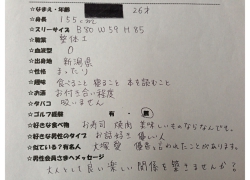 ☆なまえ・年齢 26才
☆身長 155cm
☆スリーサイズ B80 W59 H85
☆職業 整体士
☆血液型 O
☆出身地 新潟県
☆性格 まったり
☆趣味 食べること 寝ること 本を読むこと
☆お酒 お付き合い程度
☆タバコ 吸いません
☆ゴルフ経験 有・無
☆好きな食べ物 お寿司 焼肉 美味しいものならなんでも。
☆好きな男性のタイプ お話好き 優しい人
☆似ている?有名人 大塚愛 優香と言われたことがあります。
☆男性会員さまへメッセージ
大人として良い楽しい関係を築きませんか?